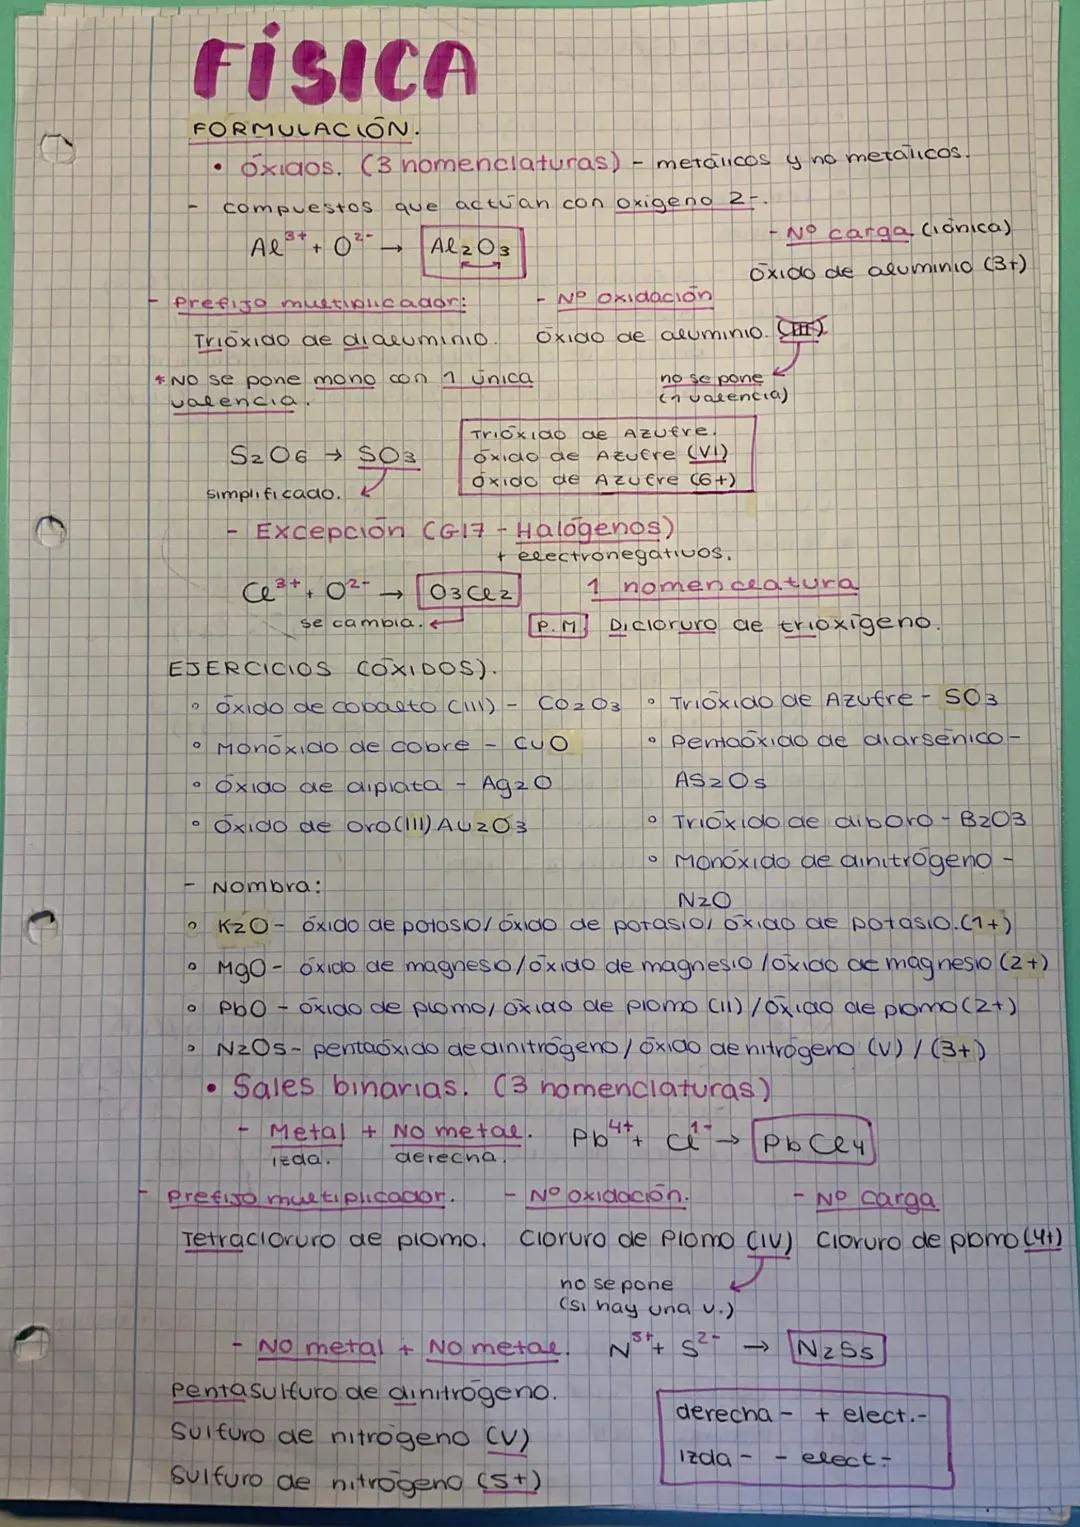 FÍSICA
FORMULACIÓN.
• Óxidos. (3 nomenclaturas) - metálicos y no metálicos.
- compuestos que actúan con oxígeno 2-.
Al³⁺ + O²⁻ → Al2O3
- Nº carga (iónica)
óxido de aluminio (3+)
- Prefijo multiplicador:
- Nº oxidación
Trióxido de dialuminio.
óxido de aluminio. (III)
* No se pone mono con 1 única
valencia.
no se pone
(1 valencia)
S2O6 → SO3
simplificado.
Trióxido de Azufre.
óxido de Azufre (VI)
óxido de Azufre (6+)
- Excepción (G17 - Halógenos)
+ electronegativos.
Cl³⁺ + O²⁻ → O3Cl2
1 nomenclatura
se cambia.
P.M. Dicloruro de trioxígeno.
EJERCICIOS (ÓXIDOS).
◦ Óxido de cobalto (III) - CO2O3
◦ Monóxido de cobre - CuO
◦ Óxido de diplata - Ag2O
◦ Óxido de oro (III) Au2O3
◦ Trióxido de Azufre - SO3
◦ Pentaóxido de diarsénico -
AS2O5
◦ Trióxido de diboro - B2O3
◦ Monóxido de dinitrógeno -
N2O
- Nombra:
◦ K2O - óxido de potasio/ óxido de potasio/ óxido de potasio.(1+)
◦ MgO - óxido de magnesio/óxido de magnesio/óxido de magnesio (2+)
◦ PbO - óxido de plomo/ óxido de plomo (II) /óxido de plomo(2+)
◦ N2O5 - pentaóxido de dinitrógeno/ óxido de nitrógeno (V) / (3+)
• Sales binarias. (3 nomenclaturas)
- Metal + No metal. Pb⁴⁺ + Cl¹⁻ → PbCl4
izda. derecha.
- Prefijo multiplicador. - Nº oxidación. - Nº carga
Tetracloruro de plomo. Cloruro de Plomo (IV) Cloruro de plomo (4+)
no se pone
(si hay una v.)
- No metal + No metal. N⁵⁺ + S²⁻ → N2S5
Pentasulfuro de dinitrógeno.
Sulfuro de nitrógeno (V)
Sulfuro de nitrógeno (5+)
derecha - + elect.-
izda - - elect-